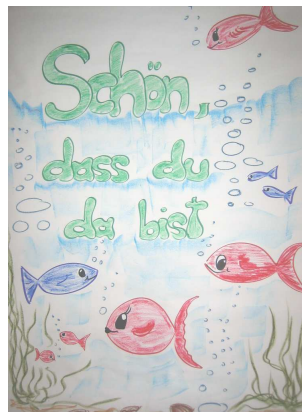 Schön,
dass du
da bist.